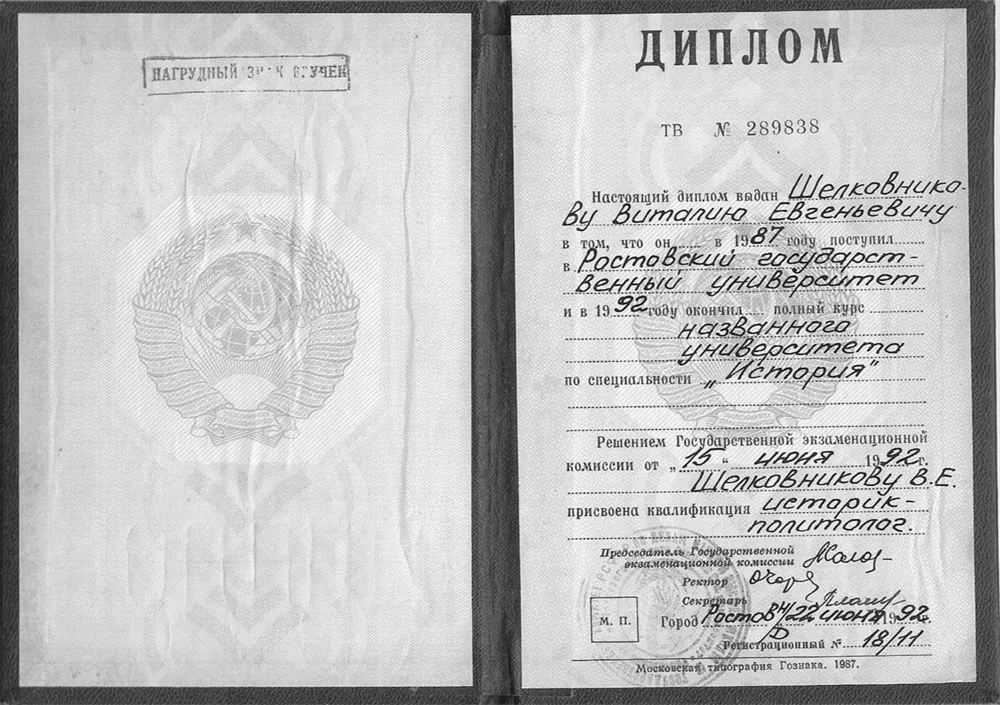 НАГРУДНЫЙ ЗНАК ВРУЧЕН
ДИПЛОМ
ТВ № 289838
Настоящий диплом выдан Шелковнико-
ву Виталию Евгеньевичу
в том, что он в 1987 году поступил
в Ростовский государст-
венный университет
и в 1992 году окончил полный курс
названного
университета
по специальности „История"
Решением Государственной экзаменационной
комиссии от „15" июня 1992 г.
Шелковникову В.Е.
присвоена квалификация историк-
политолог.
Председатель Государственной
экзаменационной комиссии
Ректор
Секретарь
М. П.
Город Ростов н/Д 22 июня 1992 г.
Регистрационный № 18/11
Московская типография Гознака. 1987.